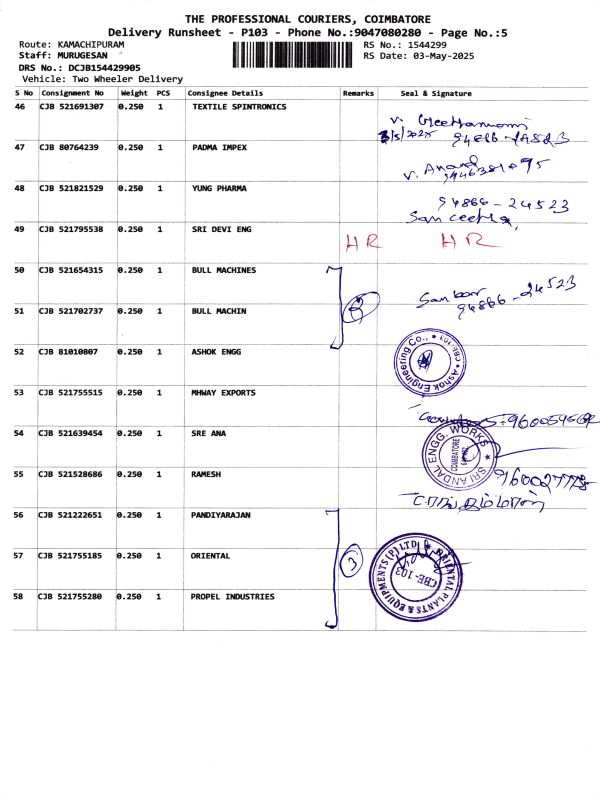 THE PROFESSIONAL COURIERS, COIMBATORE
Delivery Runsheet - P103 - Phone No.:9047080280 - Page No.:5
Route: KAMACHIPURAM RS No.: 1544299
Staff: MURUGESAN RS Date: 03-May-2025
DRS No.: DCJB154429905
Vehicle: Two Wheeler Delivery
S No Consignment No Weight PCS Consignee Details Remarks Seal & Signature
46 CJB 521691307 0.250 1 TEXTILE SPINTRONICS
3/5/2025
47 CJB 80764239 0.250 1 PADMA IMPEX
V. Anand
48 CJB 521821529 0.250 1 YUNG PHARMA
94866-24523
49 CJB 521795538 0.250 1 SRI DEVI ENG
HR HR
50 CJB 521654315 0.250 1 BULL MACHINES
94866-24523
51 CJB 521702737 0.250 1 BULL MACHIN
52 CJB 81010807 0.250 1 ASHOK ENGG
Ashok Engineering Co., * CBE-103 *
53 CJB 521755515 0.250 1 MHWAY EXPORTS
54 CJB 521639454 0.250 1 SRE ANA
SRI ANDAL ENGG. WORKS * COIMBATORE
55 CJB 521528686 0.250 1 RAMESH
56 CJB 521222651 0.250 1 PANDIYARAJAN
57 CJB 521755185 0.250 1 ORIENTAL
3
ORIENTAL PLANTS & EQUIPMENTS (P) LTD * CBE-103
58 CJB 521755280 0.250 1 PROPEL INDUSTRIES